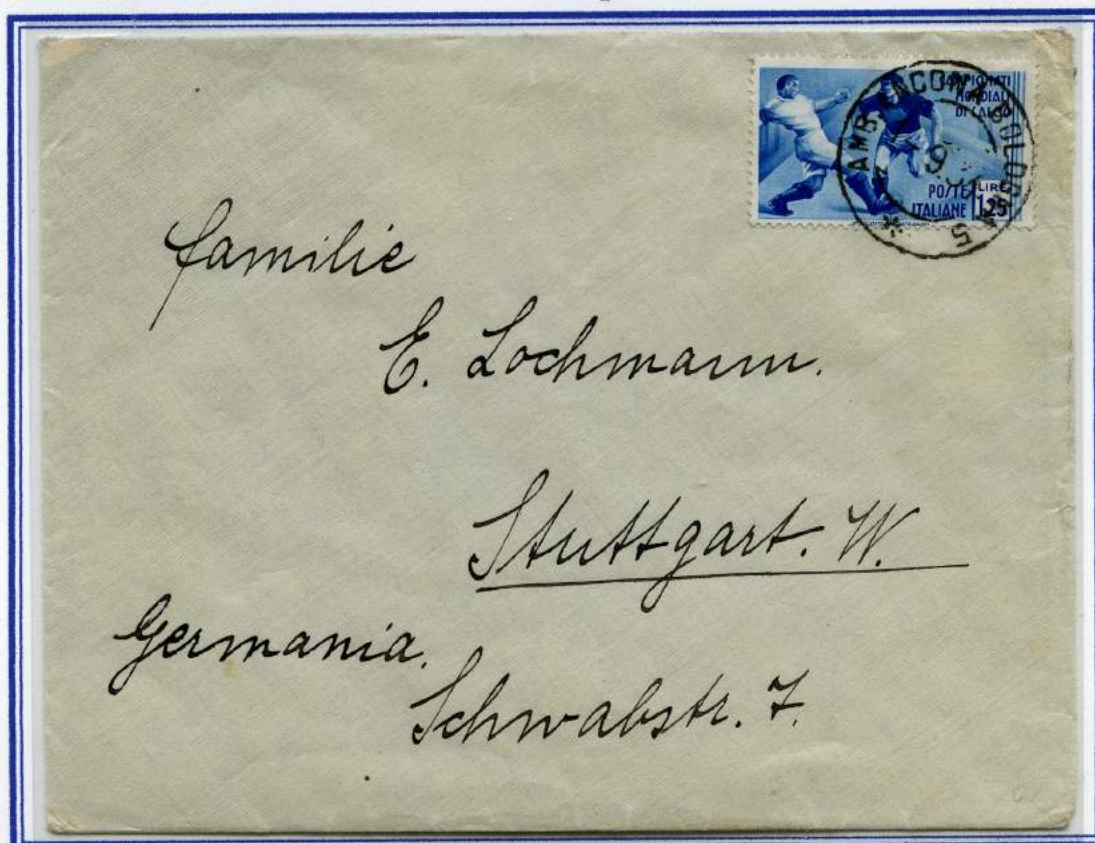 CAMPIONATI
MONDIALI
DI CALCIO
POSTE
ITALIANE
LIRE
1,25
AMB. ANCONA BOLOGNA 5
9
familie
E. Lochmann.
Stuttgart. W.
Germania.
Schwabstr. 7.